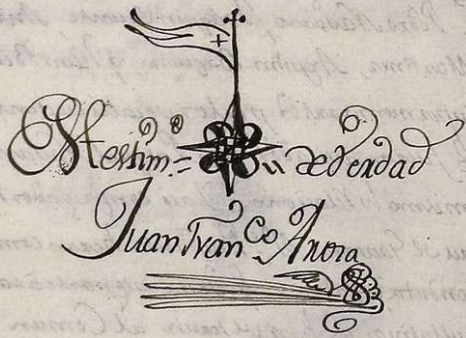 en testimº = de verdad
Juan Franco Anora